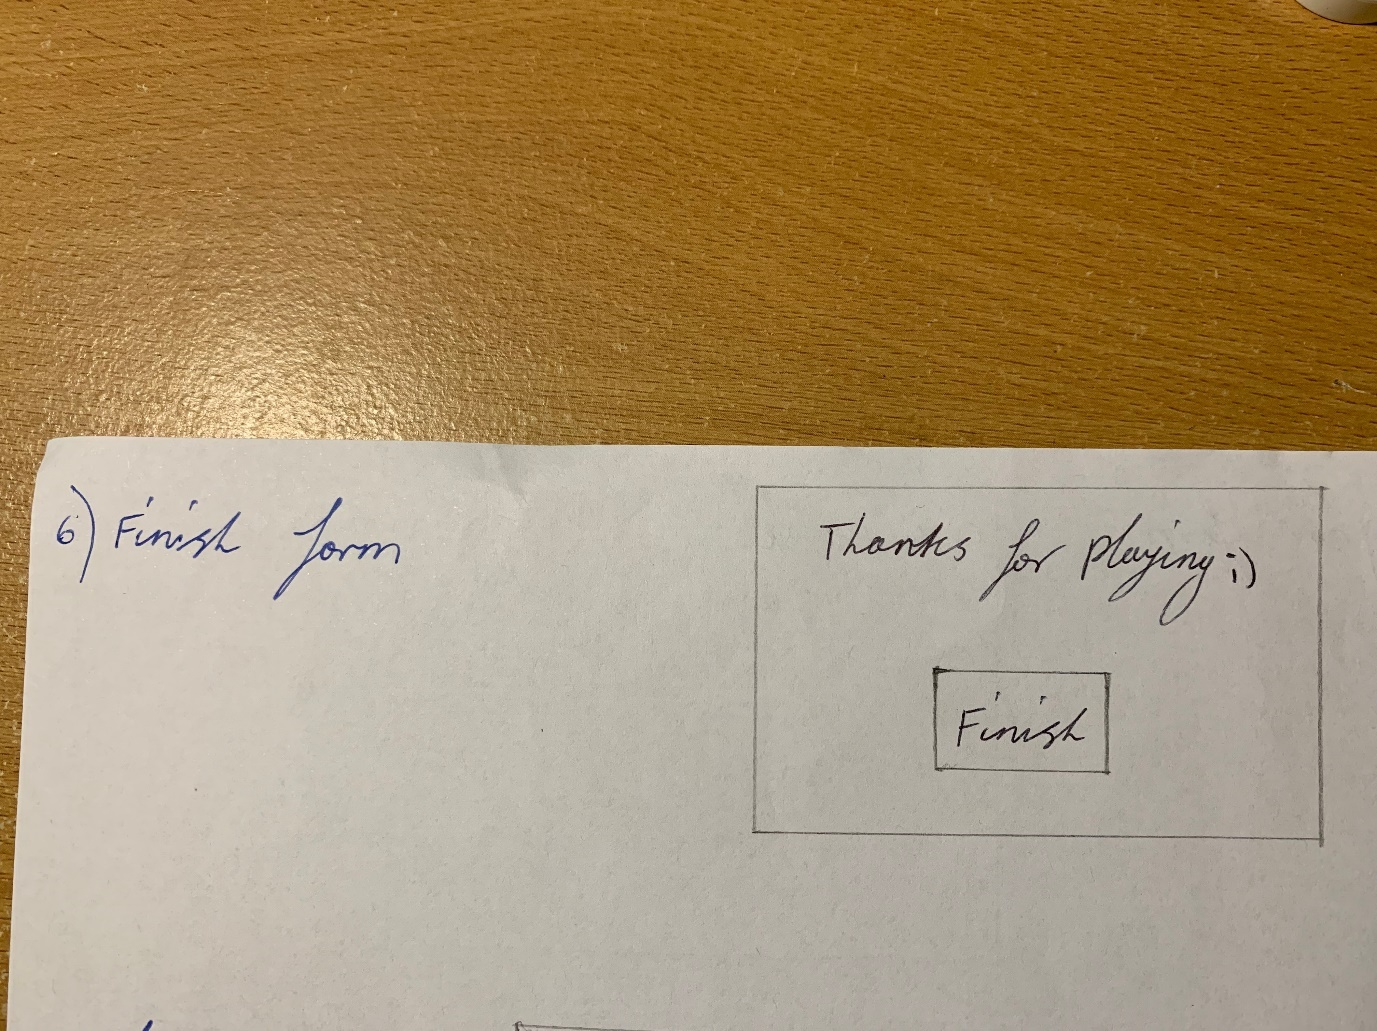 6) Finish form
Thanks for playing :)
Finish